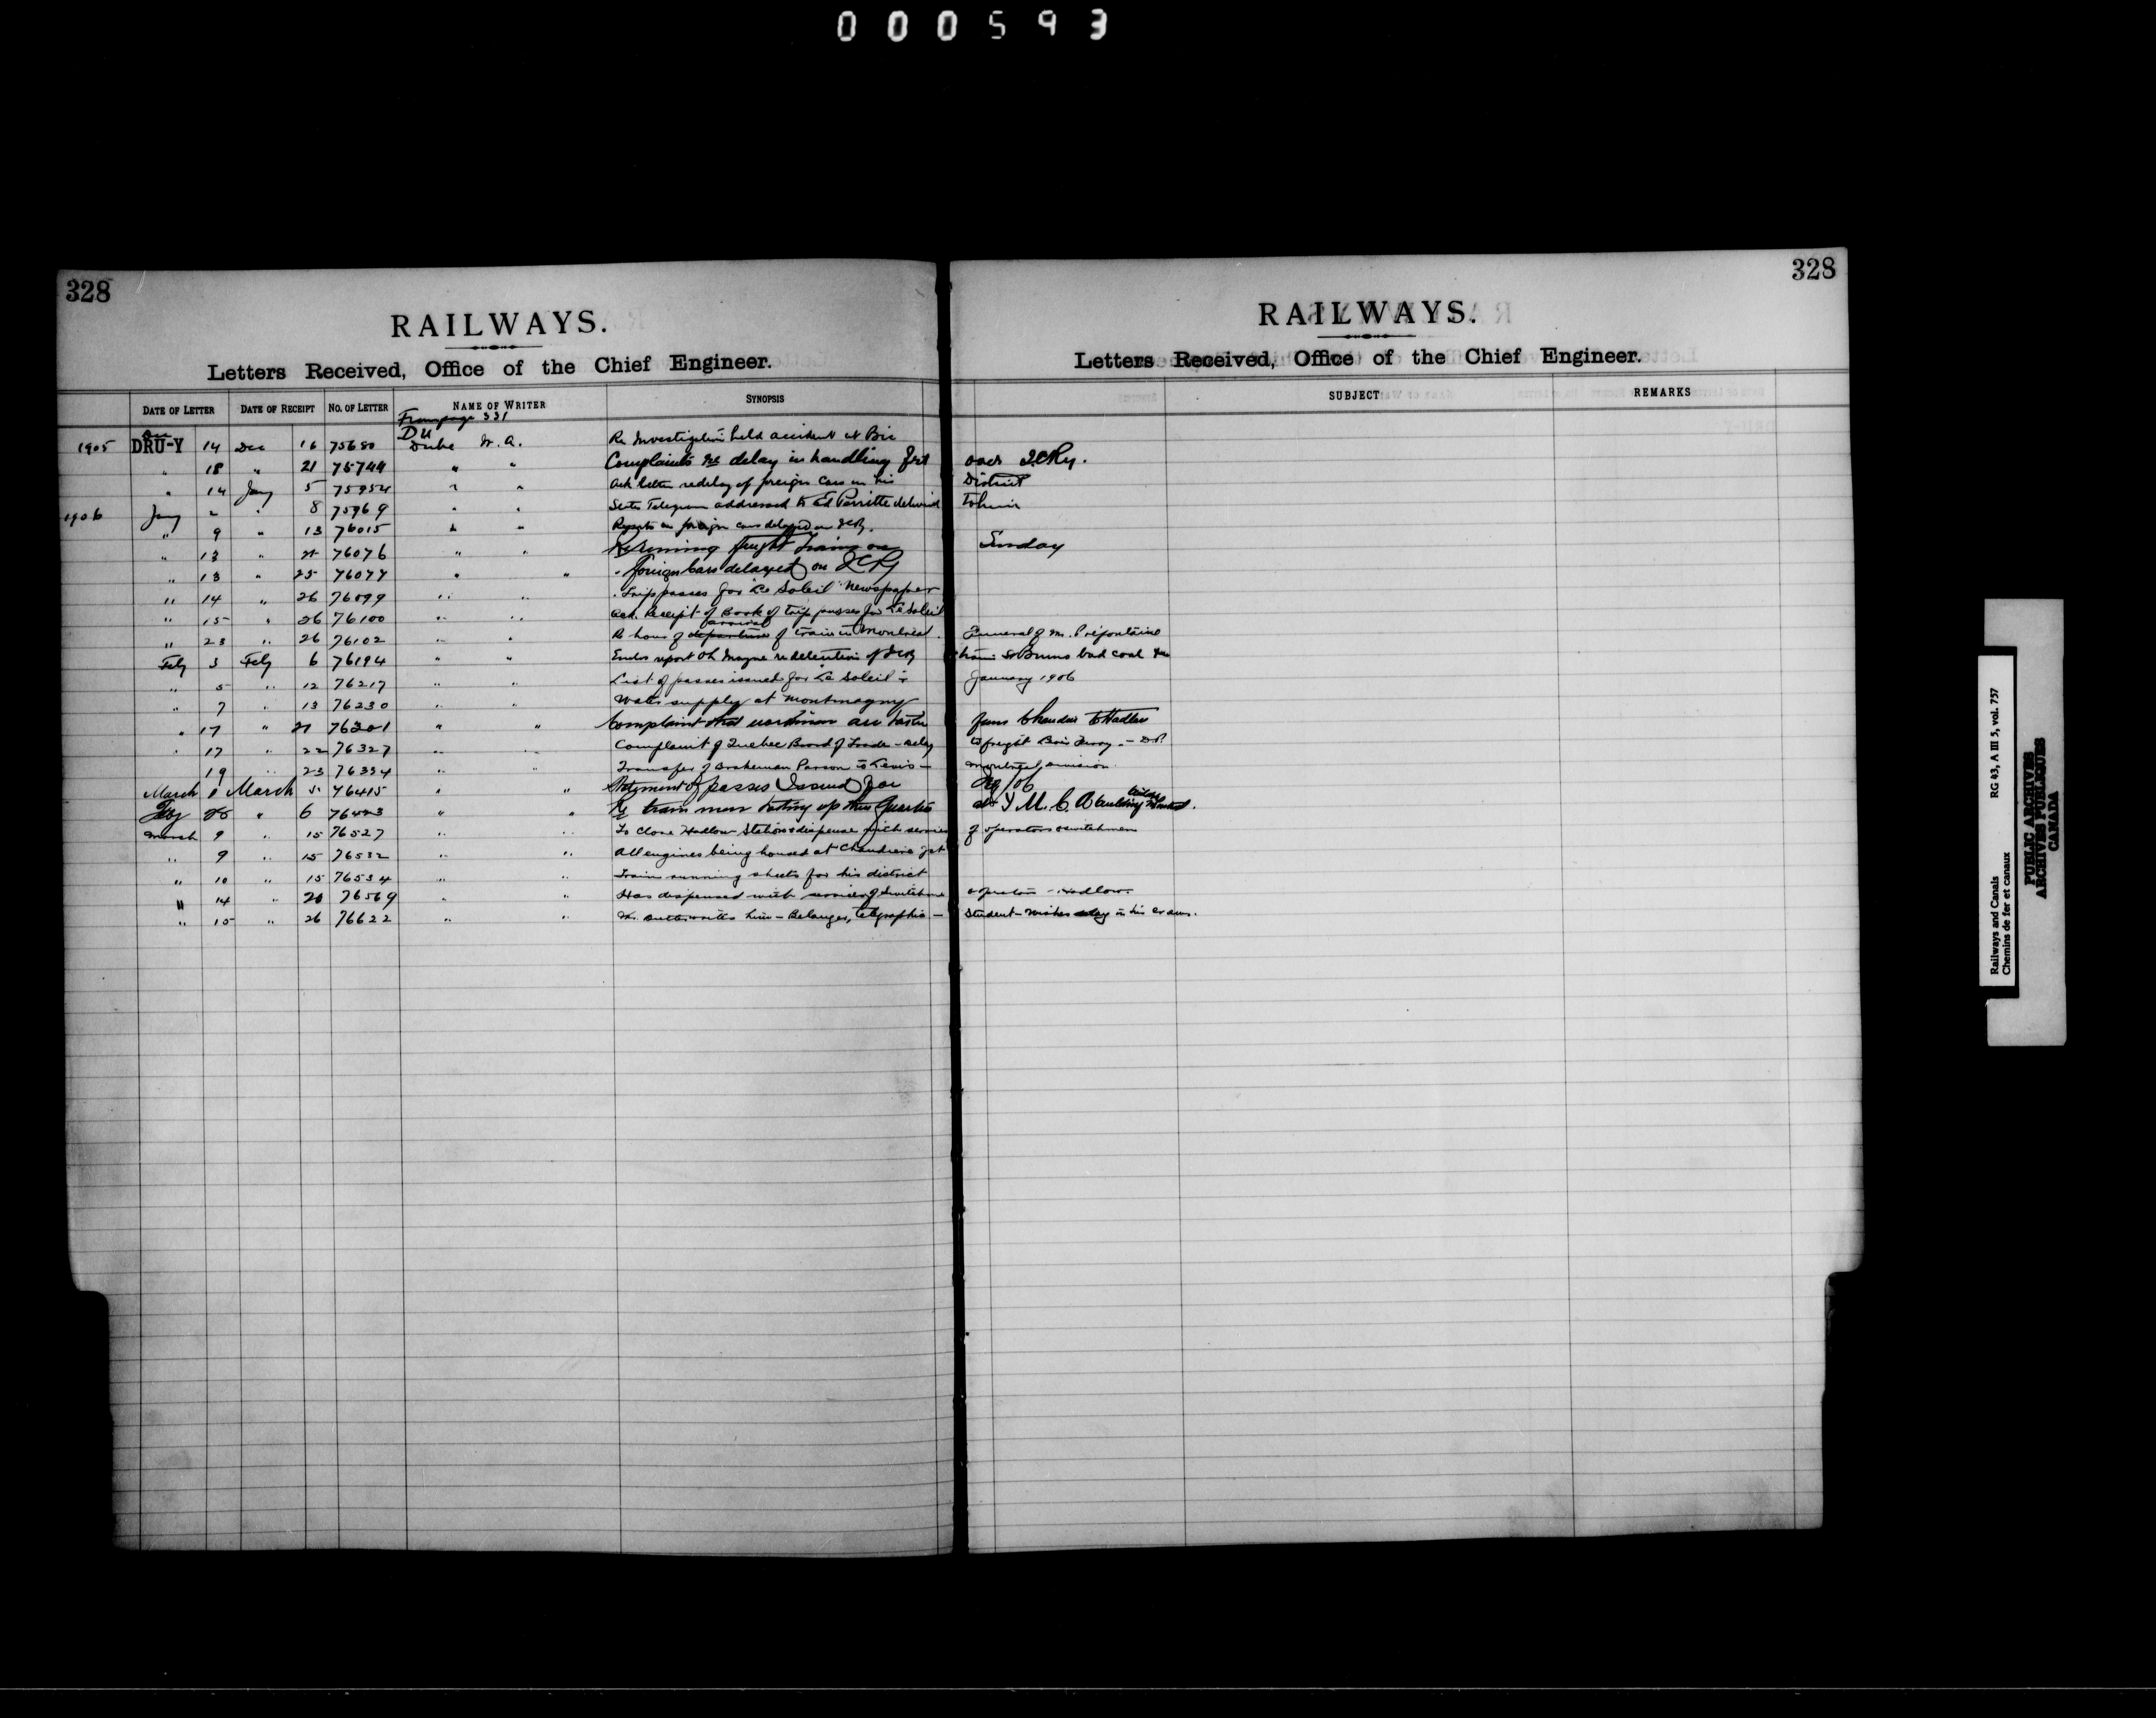 000593
328
RAILWAYS.
Letters Received, Office of the Chief Engineer.
DATE OF LETTER DATE OF RECEIPT NO. OF LETTER NAME OF WRITER SYNOPSIS
From page 331
DRU-Y DU
1905 Dec 14 Dec 16 75680 Dube W. A. Re Investigation held accident at Bic
" 18 " 21 75744 " " Complaints re delay in handling frt over I.C.Ry.
" 14 Jany 5 75954 " " Ack letter re delay of foreign cars on his District
1906 Jany 2 " 8 75969 " " Telegram addressed to Ed to him
" 9 " 13 76015 " " Reports on foreign cars delayed on ICRy.
" 13 " 25 76076 " " Re running freight trains on Sunday
" 13 " 25 76077 " " " foreign Cars delayed on ICRy
" 14 " 26 76099 " " " Trip passes for "Le Soleil" Newspaper
" 15 " 26 76100 " " Ack. Receipt of Book of trip passes for Le Soleil
" 23 " 26 76102 " " Re hour of departure arrival of train in Montreal. Funeral of Mr. Prefontaine
Feby 3 Feby 6 76194 " " report re detention of ICRy train bad coal
" 5 " 12 76217 " " List of passes issued for Le Soleil in January 1906
" 7 " 13 76230 " " Water supply at Montmagny
" 17 " 21 76301 " " Complaint that workmen are taken from Chaudiere to Hadlow
" 17 " 22 76327 " " Complaint of Quebec Board of Trade - delay to freight
19 " 23 76334 " " Transfer of Brakeman Parson to Levis - Montreal Division
March 1 March 5 76415 " " Statement of passes Issued for Feby/06
Feby 28 " 6 76423 " " Re train men taking up their Quarters at Y M. C. A building
March 9 " 15 76527 " " To close Hadlow Station & dispense with services of operators & switchmen
" 9 " 15 76532 " " All engines being housed at Chaudiere Jct
" 10 " 15 76534 " " Train running sheets for his district
" 14 " 20 76569 " " Has dispensed with services of Switchmen operators - Hadlow
" 15 " 26 76622 " " him - Belanger, telegraphic - Student - wishes delay in his exams.
328
RAILWAYS.
Letters Received, Office of the Chief Engineer.
SUBJECT REMARKS
Railways and Canals RG 43, A III 5, vol. 757
Chemins de fer et canaux
PUBLIC ARCHIVES
ARCHIVES PUBLIQUES
CANADA